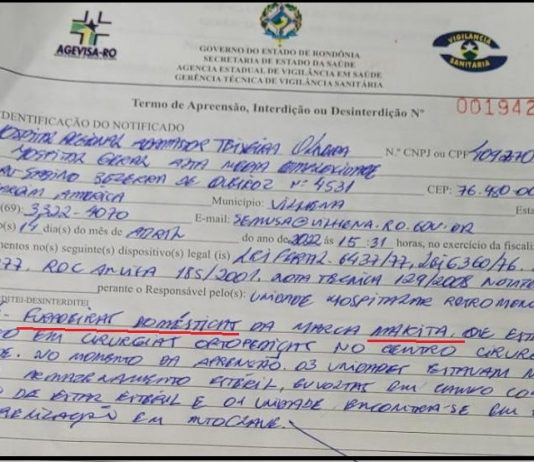 AGEVISA-RO
GOVERNO DO ESTADO DE RONDÔNIA
SECRETARIA DE ESTADO DA SAÚDE
AGÊNCIA ESTADUAL DE VIGILÂNCIA EM SAÚDE
GERÊNCIA TÉCNICA DE VIGILÂNCIA SANITÁRIA
VIGILÂNCIA SANITÁRIA
Termo de Apreensão, Interdição ou Desinterdição Nº 001942
IDENTIFICAÇÃO DO NOTIFICADO
HOSPITAL REGIONAL ADAMASTOR TEIXEIRA OLIVEIRA N.º CNPJ ou CPF
HOSPITAL GERAL ALTA MEDIA COMPLEXIDADE
BEZERRA DE QUEIROZ Nº 4531 CEP: 76.980-00
AMÉRICA Município: VILHENA Esta
(69) 3322-4070 E-mail: SEMUSA@VILHENA.RO.GOV.BR
o(s) 14 dia(s) do mês de ABRIL do ano de 2022 às 15:31 horas, no exercício da fiscali
mentos no(s) seguinte(s) dispositivo(s) legal (is) LEI FEDERAL 6437/77, LEI 6360/76
77, RDC ANVISA 185/2001, NOTA TECNICA 129/2008
perante o Responsável pelo(s): UNIDADE HOSPITALAR RETROMEN
DITEI-DESINTERDITEI
FURADEIRAS DOMÉSTICAS DA MARCA MAKITA, QUE
EM CIRURGIAS ORTOPEDICAS NO CENTRO CIRURG
NO MOMENTO DA APREENÇÃO, 03 UNIDADES ESTAVAM N
ARMAZENAMENTO ESTERIL, ENVOLTAS EM CAMPO
DE ESTAR ESTERIL E 01 UNIDADE ENCONTRA-SE EM
EM AUTOCLAVE.